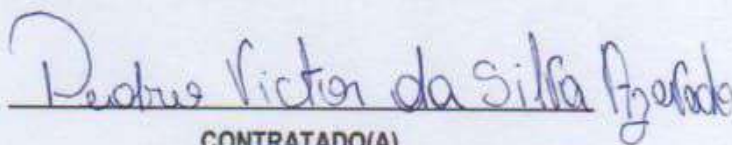 Pedro Victor da Silva Azevedo
CONTRATADO(A)